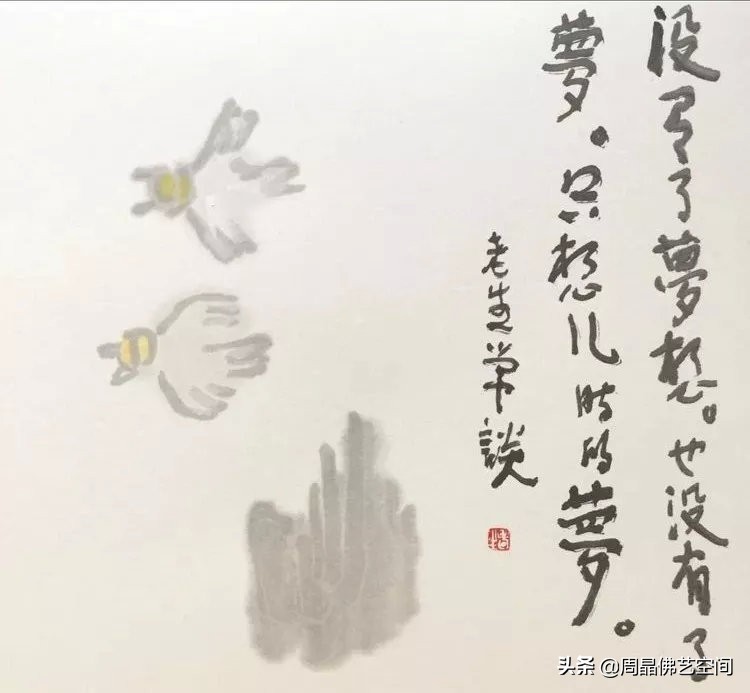 没有了夢想。也没有了
夢。只想儿时的夢。
老生常談
头条 @周晶佛艺空间